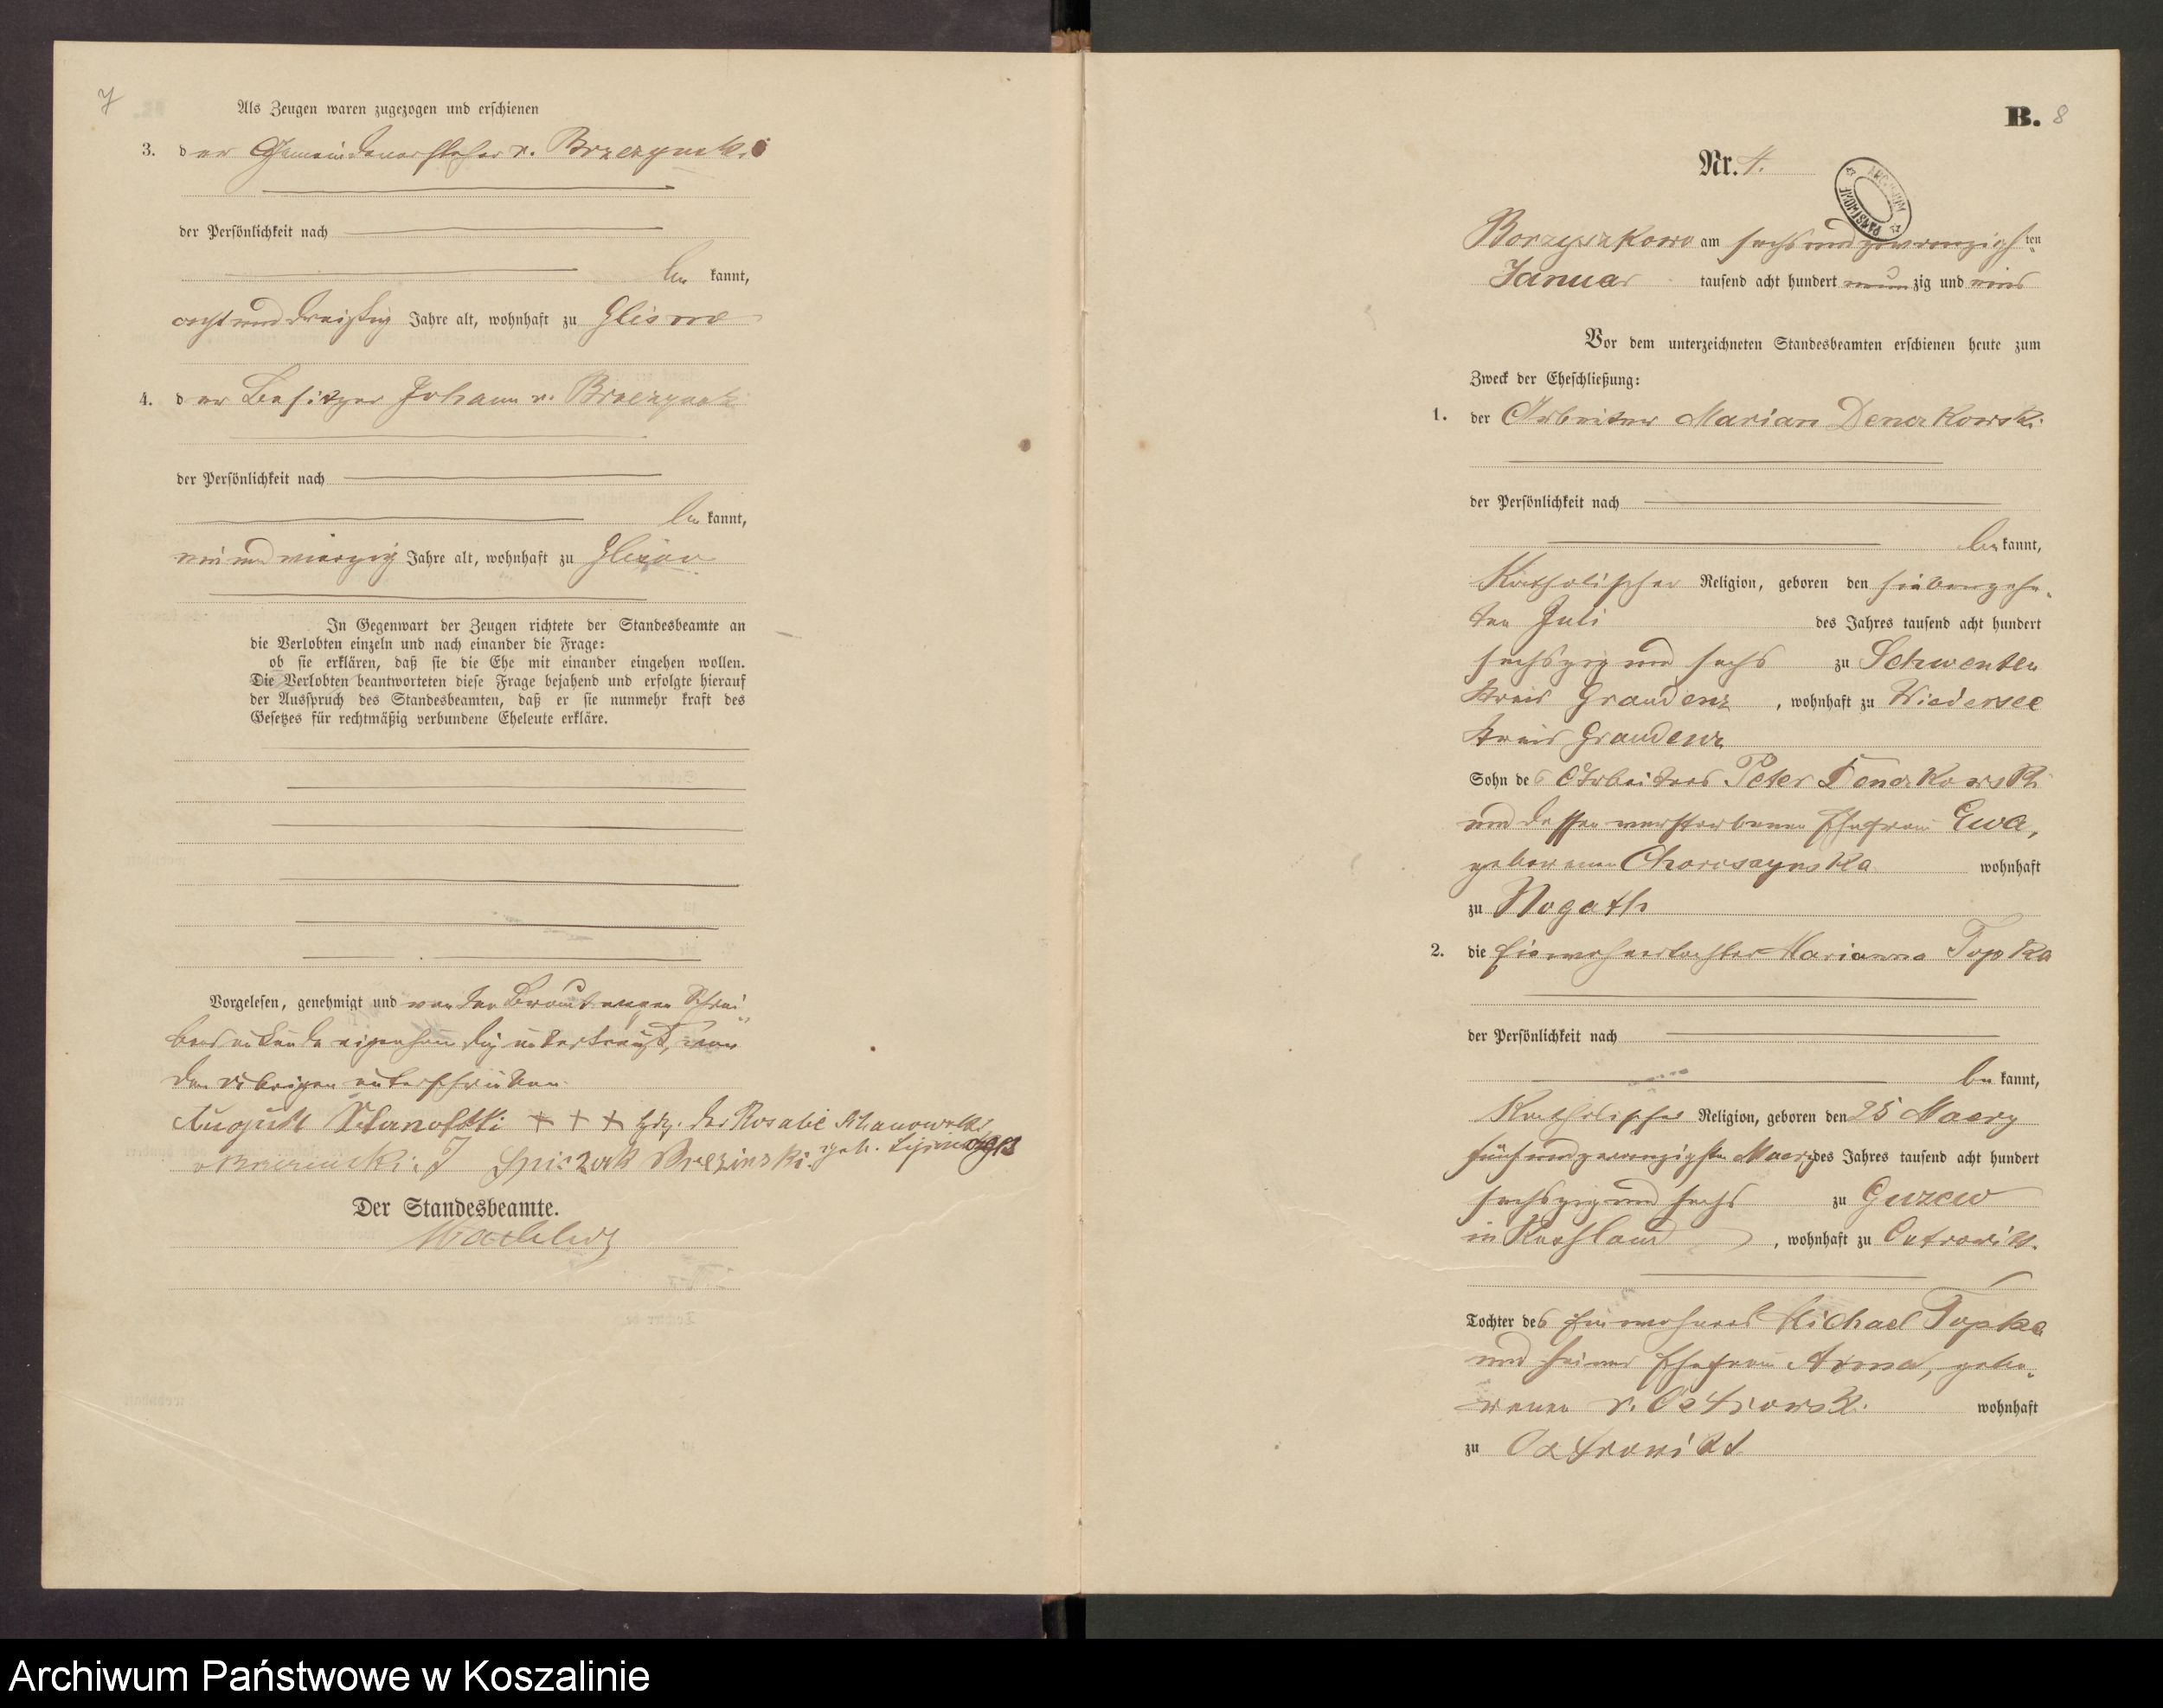 7
Als Zeugen waren zugezogen und erschienen
3. der Gemeindevorsteher v. Brzezynski
der Persönlichkeit nach
be kannt,
acht und dreißig Jahre alt, wohnhaft zu Glisno
4. der Besitzer Johann v. Brzezynski
der Persönlichkeit nach
be kannt,
ein und vierzig Jahre alt, wohnhaft zu
In Gegenwart der Zeugen richtete der Standesbeamte an
die Verlobten einzeln und nach einander die Frage:
ob sie erklären, daß sie die Ehe mit einander eingehen wollen.
Die Verlobten beantworteten diese Frage bejahend und erfolgte hierauf
der Ausspruch des Standesbeamten, daß er sie nunmehr kraft des
Gesetzes für rechtmäßig verbundene Eheleute erkläre.
Vorgelesen, genehmigt und von der Braut wegen Schrei-
bensunkunde eigenhändig unterkreuzt, von
den übrigen unterschrieben.
August + + + Hdz. der Rosalie
geb.
Der Standesbeamte.
B. 8
Nr. 4.
Borzyszkowo am sechs und zwanzigsten
Januar tausend acht hundert neun zig und eins
Vor dem unterzeichneten Standesbeamten erschienen heute zum
Zweck der Eheschließung:
1. der Arbeiter Marian
der Persönlichkeit nach
be kannt,
Katholischer Religion, geboren den siebenzehn-
ten Juli des Jahres tausend acht hundert
sechszig und sechs zu Schwenten
Kreis Graudenz, wohnhaft zu Wiedersee
Kreis Graudenz
Sohn des Arbeiters Peter
und dessen verstorbenen Ehefrau Ewa,
geborenen wohnhaft
zu Nogath
2. die Einwohnertochter Marianna Topka
der Persönlichkeit nach
be kannt,
Katholischer Religion, geboren den 25 Maerz
fünf und zwanzigsten Maerz des Jahres tausend acht hundert
sechszig und sechs zu Guzew
in Russland, wohnhaft zu Ostrowitt.
Tochter des Einwohners Michael Topka
und seiner Ehefrau Anna, gebo-
renen v. Ostrowsk. wohnhaft
zu Ostrowitt
Archiwum Państwowe w Koszalinie